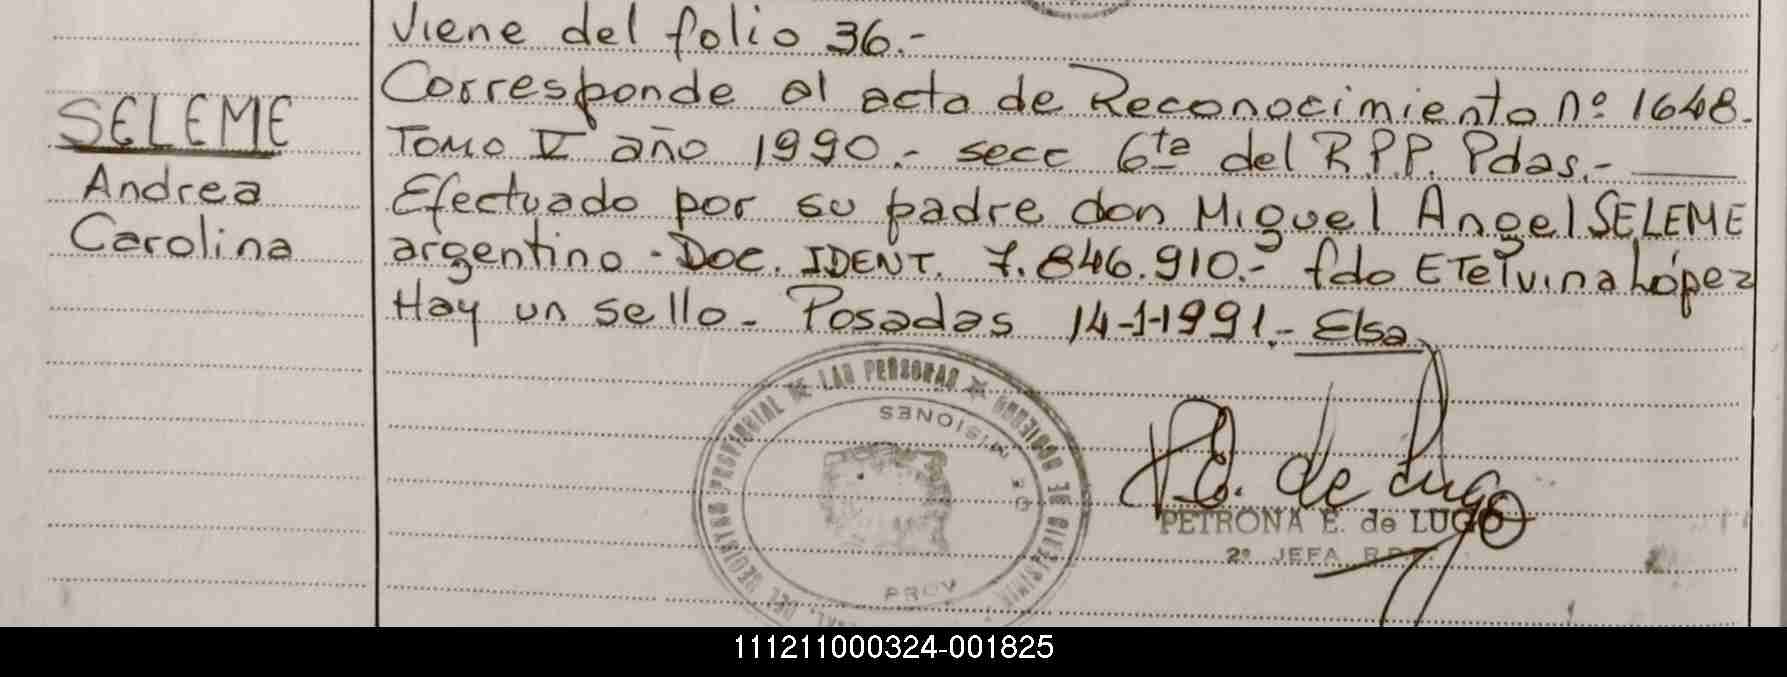 Viene del folio 36.-
Corresponde al acta de Reconocimiento nº 1648.
SELEME
Tomo V año 1990.- secc 6ta del R.P.P. Pdas.-
Andrea
Efectuado por su padre don Miguel Angel SELEME
Carolina
argentino - Doc. IDENT. 7.846.910.- fdo ETelvina López
Hay un sello - Posadas 14-1-1991.- Elsa
LAS PERSONAS
MISIONES
PROV
P.E. de Lugo
PETRONA E. de LUGO
2º JEFA R.P.P.
111211000324-001825